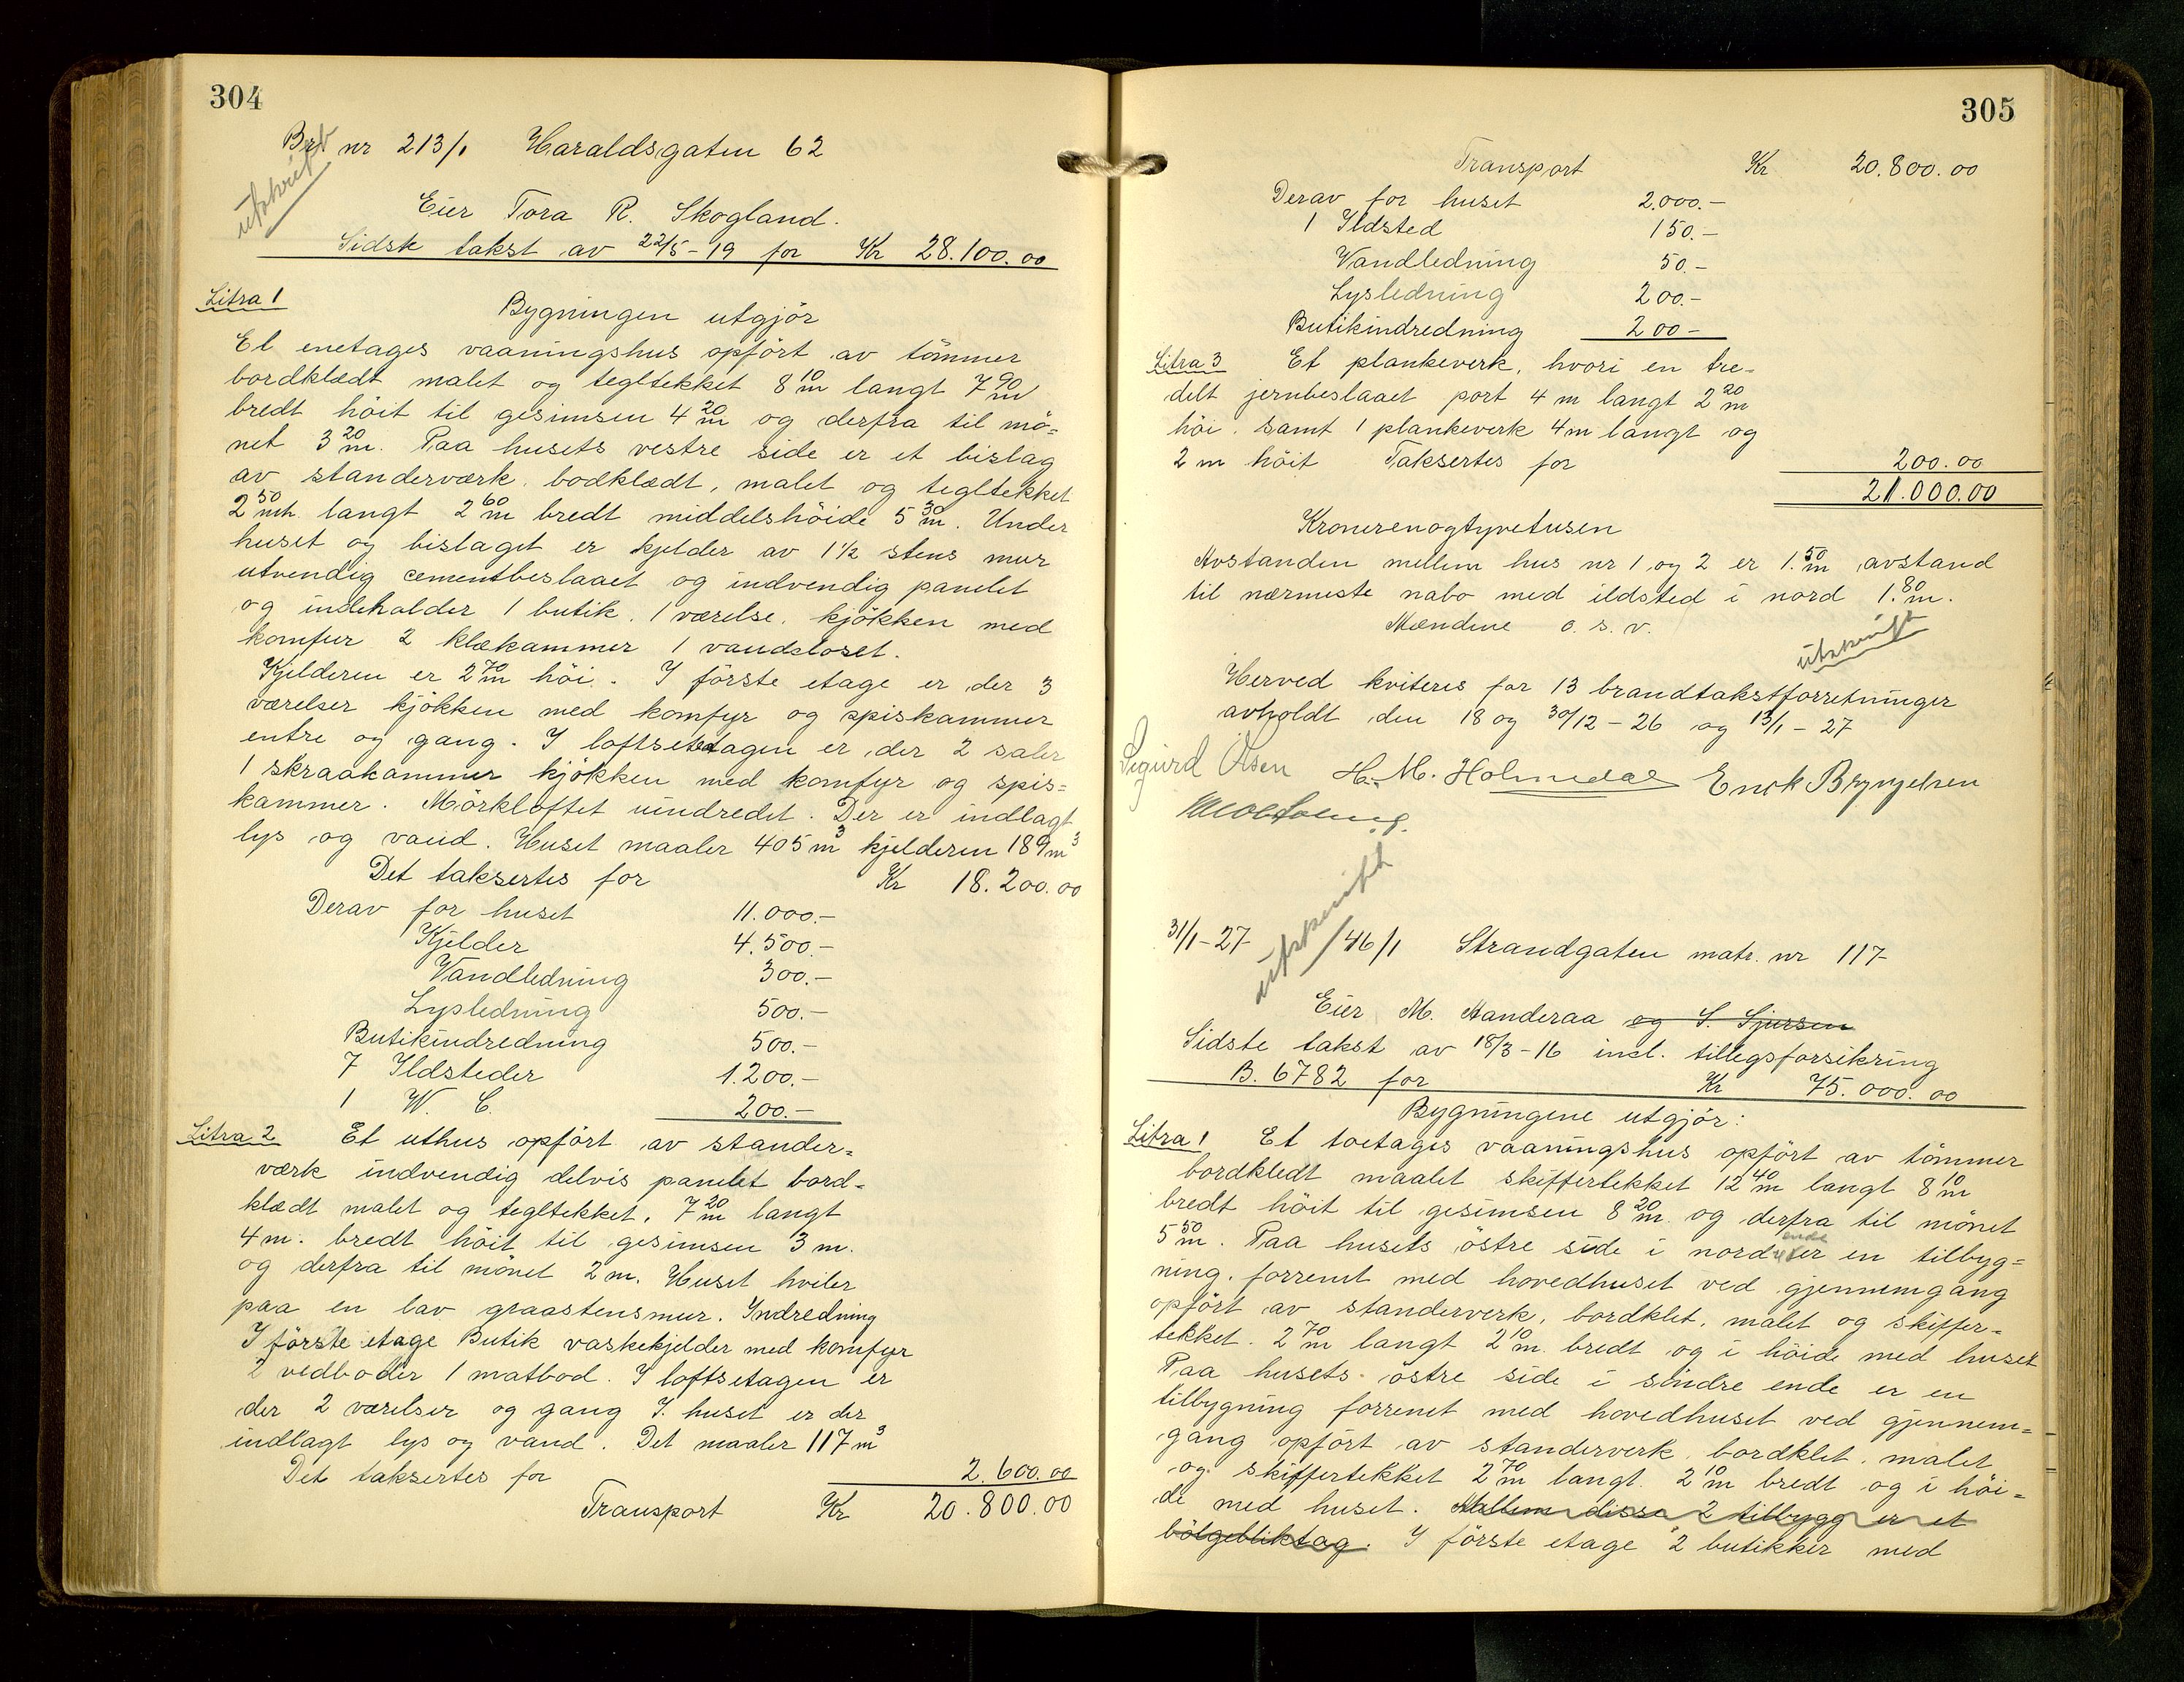 304
Brt nr 213/1 Haraldsgaten 62
utskrift
Eier Tora R. Skogland.
Sidste takst av 22/5-19 for Kr 28.100.00
Litra 1
Bygningen utgjör
Et enetages vaaningshus opfört av tömmer
bordklædt malet og tegltekket 8 10/m langt 7 90/m
bredt höit til gesimsen 4 20/m og derfra til mö=
net 3 20/m. Paa husets vestre side er et bislag
av standerværk. bodklædt, malet og tegltekket
2 50/mtr. langt 2 60/m bredt middelshöide 5 30/m. Under
huset og bislaget er kjelder av 1 1/2 stens mur
utvendig cementbeslaaet og indvendig panelet
og indeholder 1 butik. 1 værelse. kjökken med
komfur 2 klækammer 1 vandcloset.
Kjelderen er 2 70/m höi. I förste etage er der 3
værelser kjökken med komfyr og spiskammer
entre og gang. I loftsetedagen er der 2 saler
1 skraakammer kjökken med komfyr og spis=
kammer. Mörkloftet uindredet. Der er indlagt
lys og vand. Huset maaler 405 m³ kjelderen 189 m³
Det taksertes for Kr 18.200.00
Derav for huset 11.000.-
Kjelder 4.500.-
Vandledning 300.-
Lysledning 500.-
Butikindredning 500.-
7 Ildsteder 1.200.-
1 W. C. 200.-
Litra 2 Et uthus opfört av stander=
værk indvendig delvis panelet bord=
klædt malet og tegltekket. 7 20/m langt
4 m. bredt höit til gesimsen 3 m.
og derfra til mönet 2 m. Huset hviler
paa en lav graastensmur. Indredning
I förste etage Butik vaskekjelder med komfyr
2 vedboder 1 matbod. I loftsetagen er
der 2 værelser og gang I. huset er der
indlagt lys og vand. Det maaler 117 m³
Det taksertes for 2.600.00
Transport Kr 20.800.00
305
Transport Kr 20.800.00
Derav for huset 2.000.-
1 Ildsted 150.-
Vandledning 50.-
Lysledning 200.-
Butikindredning 200-
Litra 3 Et plankeverk, hvori en tre=
delt jernbeslaaet port 4 m langt 2 20/m
höi. Samt 1 plankeverk 4 m langt og
2 m höit Taksertes for 200.00
21.000.00
Kronerenogtyvetusen
Avstanden mellem hus nr 1 og 2 er 1. 50/m avstand
til nærmeste nabo med ildsted i nord 1. 80/m.
Mændene o. s. v.
utskrift
Herved kviteres for 13 brandtakstforretninger
avholdt den 18 og 30/12 - 26 og 13/1 - 27
Sigurd Olsen H. M. Holmedal Enok Brynjelsen
utskrift
31/1-27 46/1 Strandgaten matr. nr 117
Eier M. Aanderaa og S. Sjursen
Sidste takst av 18/3-16 incl. tillegsforsikring
B. 6782 for Kr 75.000.00
Bygningene utgjör:
Litra 1 Et toetages vaaningshus opfört av tömmer
bordkledt maalet skiffertekket 12 40/m langt 8 10/m
bredt höit til gesimsen 8 20/m og derfra til mönet
5 50/m. Paa husets östre side i nord ende er en tilbyg=
ning. forrent med hovedhuset ved gjennemgang
opfört av standerverk, bordklet, malet og skiffer=
tekket. 2 70/m langt 2 10/m. bredt og i höide med huset
Paa husets östre side i söndre ende er en
tilbygning forrenet med hovedhuset ved gjennem=
gang opfört av standerverk. bordklet. malet
og skiffertekket 2 70/m langt. 2 10/m bredt og i höi=
de med huset. Mellem disse 2 tilbygg er et
bölgebliktag. I förste etage 2 butikker med